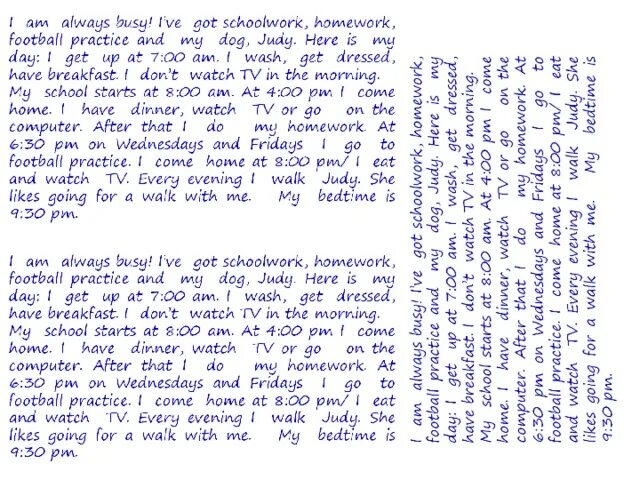 I am always busy! I've got schoolwork, homework,
football practice and my dog, Judy. Here is my
day: I get up at 7:00 am. I wash, get dressed,
have breakfast. I don't watch TV in the morning.
My school starts at 8:00 am. At 4:00 pm I come
home. I have dinner, watch TV or go on the
computer. After that I do my homework. At
6:30 pm on Wednesdays and Fridays I go to
football practice. I come home at 8:00 pm/ I eat
and watch TV. Every evening I walk Judy. She
likes going for a walk with me. My bedtime is
9:30 pm.
I am always busy! I've got schoolwork, homework,
football practice and my dog, Judy. Here is my
day: I get up at 7:00 am. I wash, get dressed,
have breakfast. I don't watch TV in the morning.
My school starts at 8:00 am. At 4:00 pm I come
home. I have dinner, watch TV or go on the
computer. After that I do my homework. At
6:30 pm on Wednesdays and Fridays I go to
football practice. I come home at 8:00 pm/ I eat
and watch TV. Every evening I walk Judy. She
likes going for a walk with me. My bedtime is
9:30 pm.
I am always busy! I've got schoolwork, homework,
football practice and my dog, Judy. Here is my
day: I get up at 7:00 am. I wash, get dressed,
have breakfast. I don't watch TV in the morning.
My school starts at 8:00 am. At 4:00 pm I come
home. I have dinner, watch TV or go on the
computer. After that I do my homework. At
6:30 pm on Wednesdays and Fridays I go to
football practice. I come home at 8:00 pm/ I eat
and watch TV. Every evening I walk Judy. She
likes going for a walk with me. My bedtime is
9:30 pm.